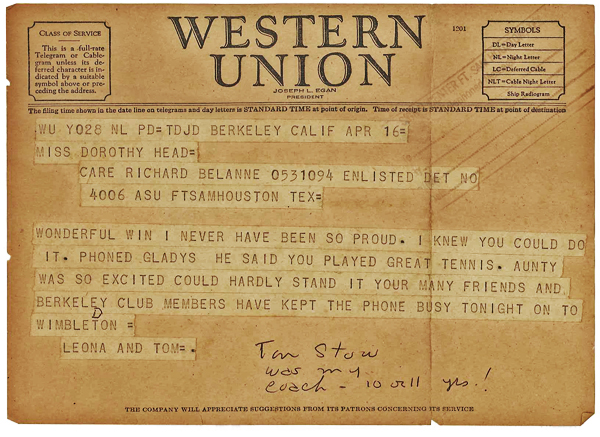 CLASS OF SERVICE
This is a full-rate
Telegram or Cable-
gram unless its de-
ferred character is in-
dicated by a suitable
symbol above or pre-
ceding the address.
WESTERN
UNION
JOSEPH L. EGAN
PRESIDENT
1201
SYMBOLS
DL=Day Letter
NL=Night Letter
LC=Deferred Cable
NLT=Cable Night Letter
Ship Radiogram
The filing time shown in the date line on telegrams and day letters is STANDARD TIME at point of origin. Time of receipt is STANDARD TIME at point of destination
WU Y028 NL PD=TDJD BERKELEY CALIF APR 16=
MISS DOROTHY HEAD=
CARE RICHARD BELANNE 0531094 ENLISTED DET NO
4006 ASU FTSAMHOUSTON TEX=
WONDERFUL WIN I NEVER HAVE BEEN SO PROUD. I KNEW YOU COULD DO
IT. PHONED GLADYS HE SAID YOU PLAYED GREAT TENNIS. AUNTY
WAS SO EXCITED COULD HARDLY STAND IT YOUR MANY FRIENDS AND
BERKELEY CLUB MEMBERS HAVE KEPT THE PHONE BUSY TONIGHT ON TO
D
WIMBLETON =
LEONA AND TOM=.
Tom Stow
was my
coach - 10 or 11 yrs.!
THE COMPANY WILL APPRECIATE SUGGESTIONS FROM ITS PATRONS CONCERNING ITS SERVICE